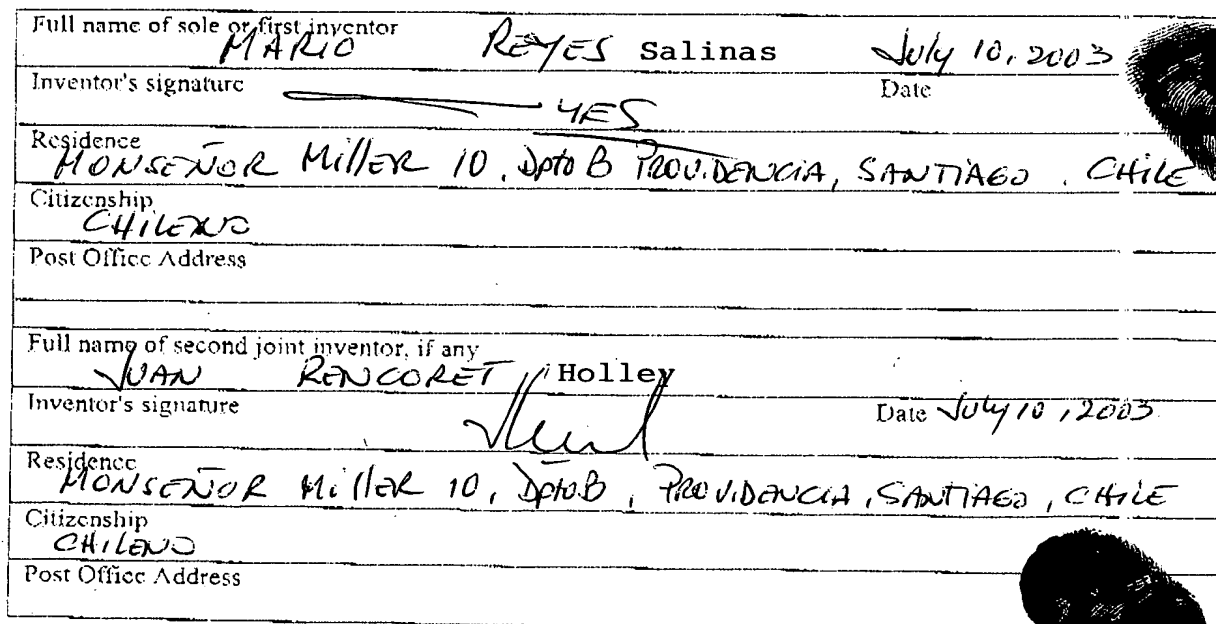 Full name of sole or first inventor
MARIO REYES Salinas July 10, 2003
Inventor's signature Date
Residence
MONSEÑOR Miller 10, Dpto B PROVIDENCIA, SANTIAGO, CHILE
Citizenship
CHILENO
Post Office Address
Full name of second joint inventor, if any
JUAN RENCORET Holley
Inventor's signature Date July 10, 2003
Residence
MONSEÑOR Miller 10, Dpto.B, PROVIDENCIA, SANTIAGO, CHILE
Citizenship
CHILENO
Post Office Address